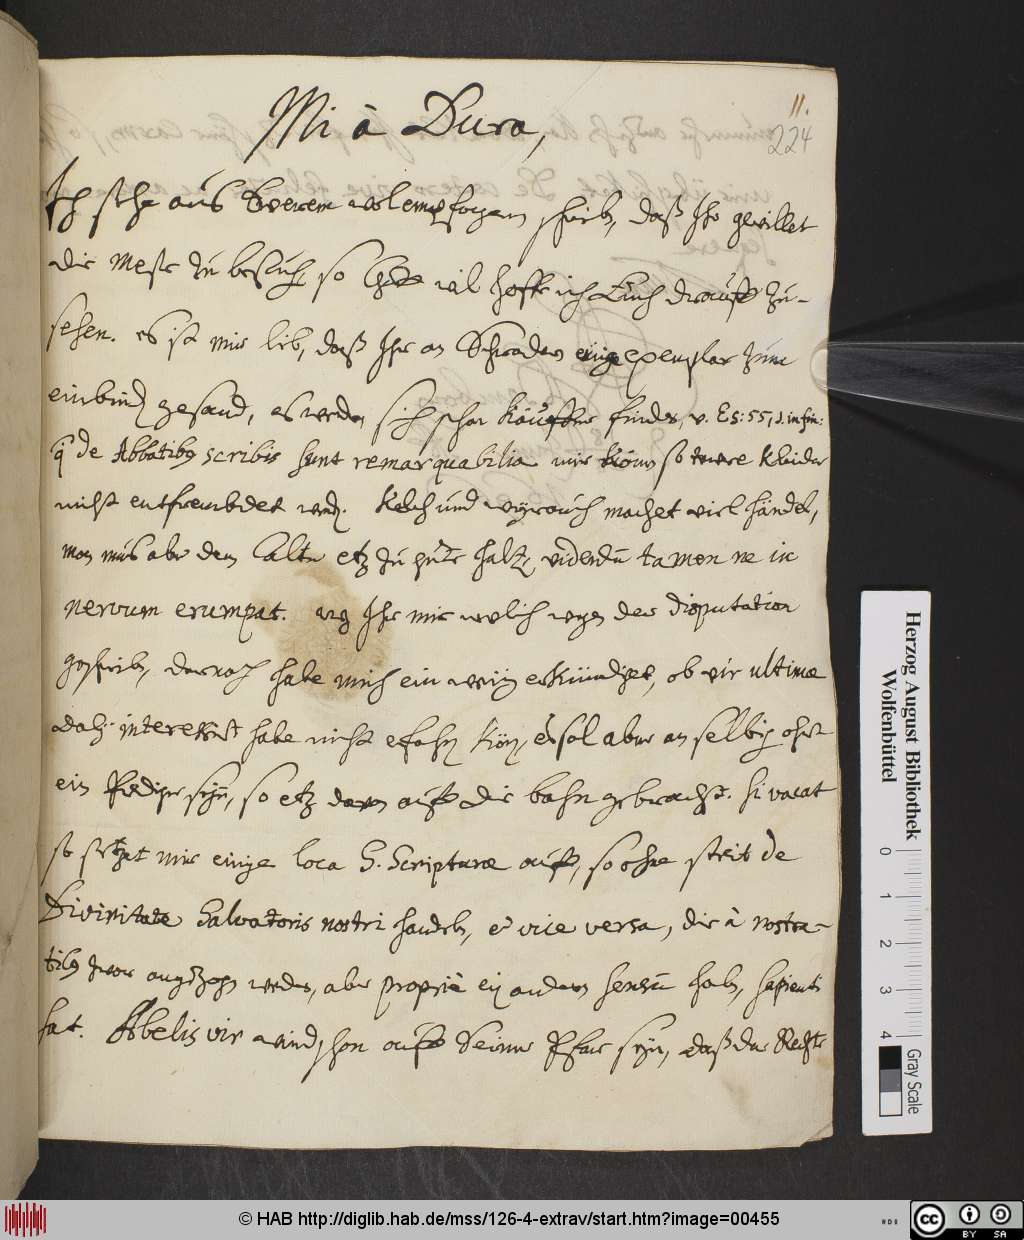 11.
224
Mi à Dura,
Ich sehe aus Deerem wolempfogem schrib, daß Ihr gewillet
die Messe zu besuch so Gott wil hoffe ich Euch drauff zu-
sehen. es ist mir lib, daß Ihr an Schradern einige exemplar zum
einbind gesand, es werden sich schon Käuffer finden, v. Es: 55, 1. in fin:
q de Abbatibq scribis sunt remarquabilia mir so Kleider
nicht entfrembdet werd. Kelch und wyrauch machet viel händel,
man mus aber dem Calte etz zu gute halt, videndū tamen ne in
nervum erumpat. wz Ihr mir wegen der disputation
geschrib, darnach habe mich ein wenig erkündiget, ob vir ultime
dabÿ interessirt habe nicht efahn kön, es sol aber an selbig ohrt
ein Prediger seyn, so etz davon auff die bahn gebracht. si vacat
so setzet mir einige loca S. Scripturæ auff, so ohne streit de
Divinitate Salvatoris nostri handeln, et vice versa, die à nostra-
tibq zwar angezogen werden, aber propriè ein andern sensū hab, sapienti
sat. Abelis vir wird schon auff Seiner Pfar seyn, daß der Rechte
Herzog August Bibliothek
Wolfenbüttel
0 1 2 3 4
Gray Scale
© HAB http://diglib.hab.de/mss/126-4-extrav/start.htm?image=00455
HAB
CC BY SA